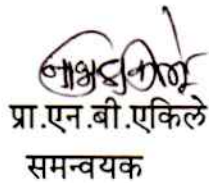 प्रा.एन.बी.एकिले
समन्वयक